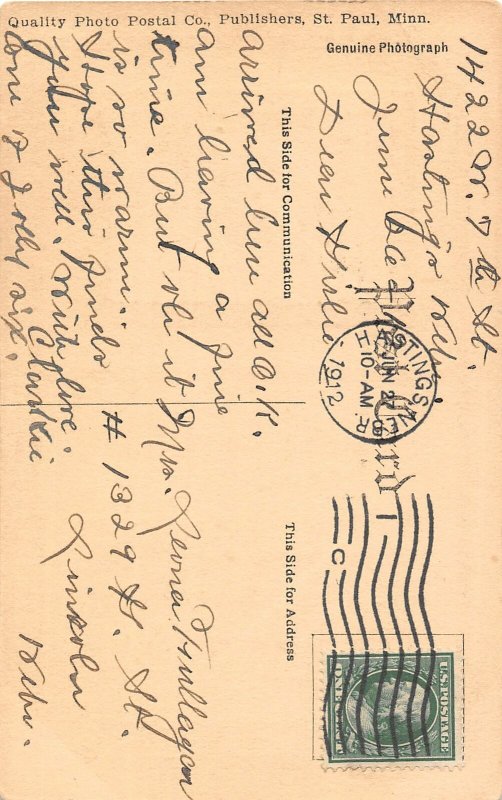 Quality Photo Postal Co., Publishers, St. Paul, Minn.
Genuine Photograph
Post Card
This Side for Communication
This Side for Address
1422 W. 7th St.
Hastings Nebr.
June
Dear
arrived here all O.K.
am having a fine
time. But oh it
is so warm.
Hope this finds
you well. With love.
Clarkie
one of Jolly six.
Mrs. Leona Hullagan
# 1329 H. St.
Lincoln
Nebr.
HASTINGS, NEBR.
JUN 27
10-AM
1912
U.S. POSTAGE
ONE CENT